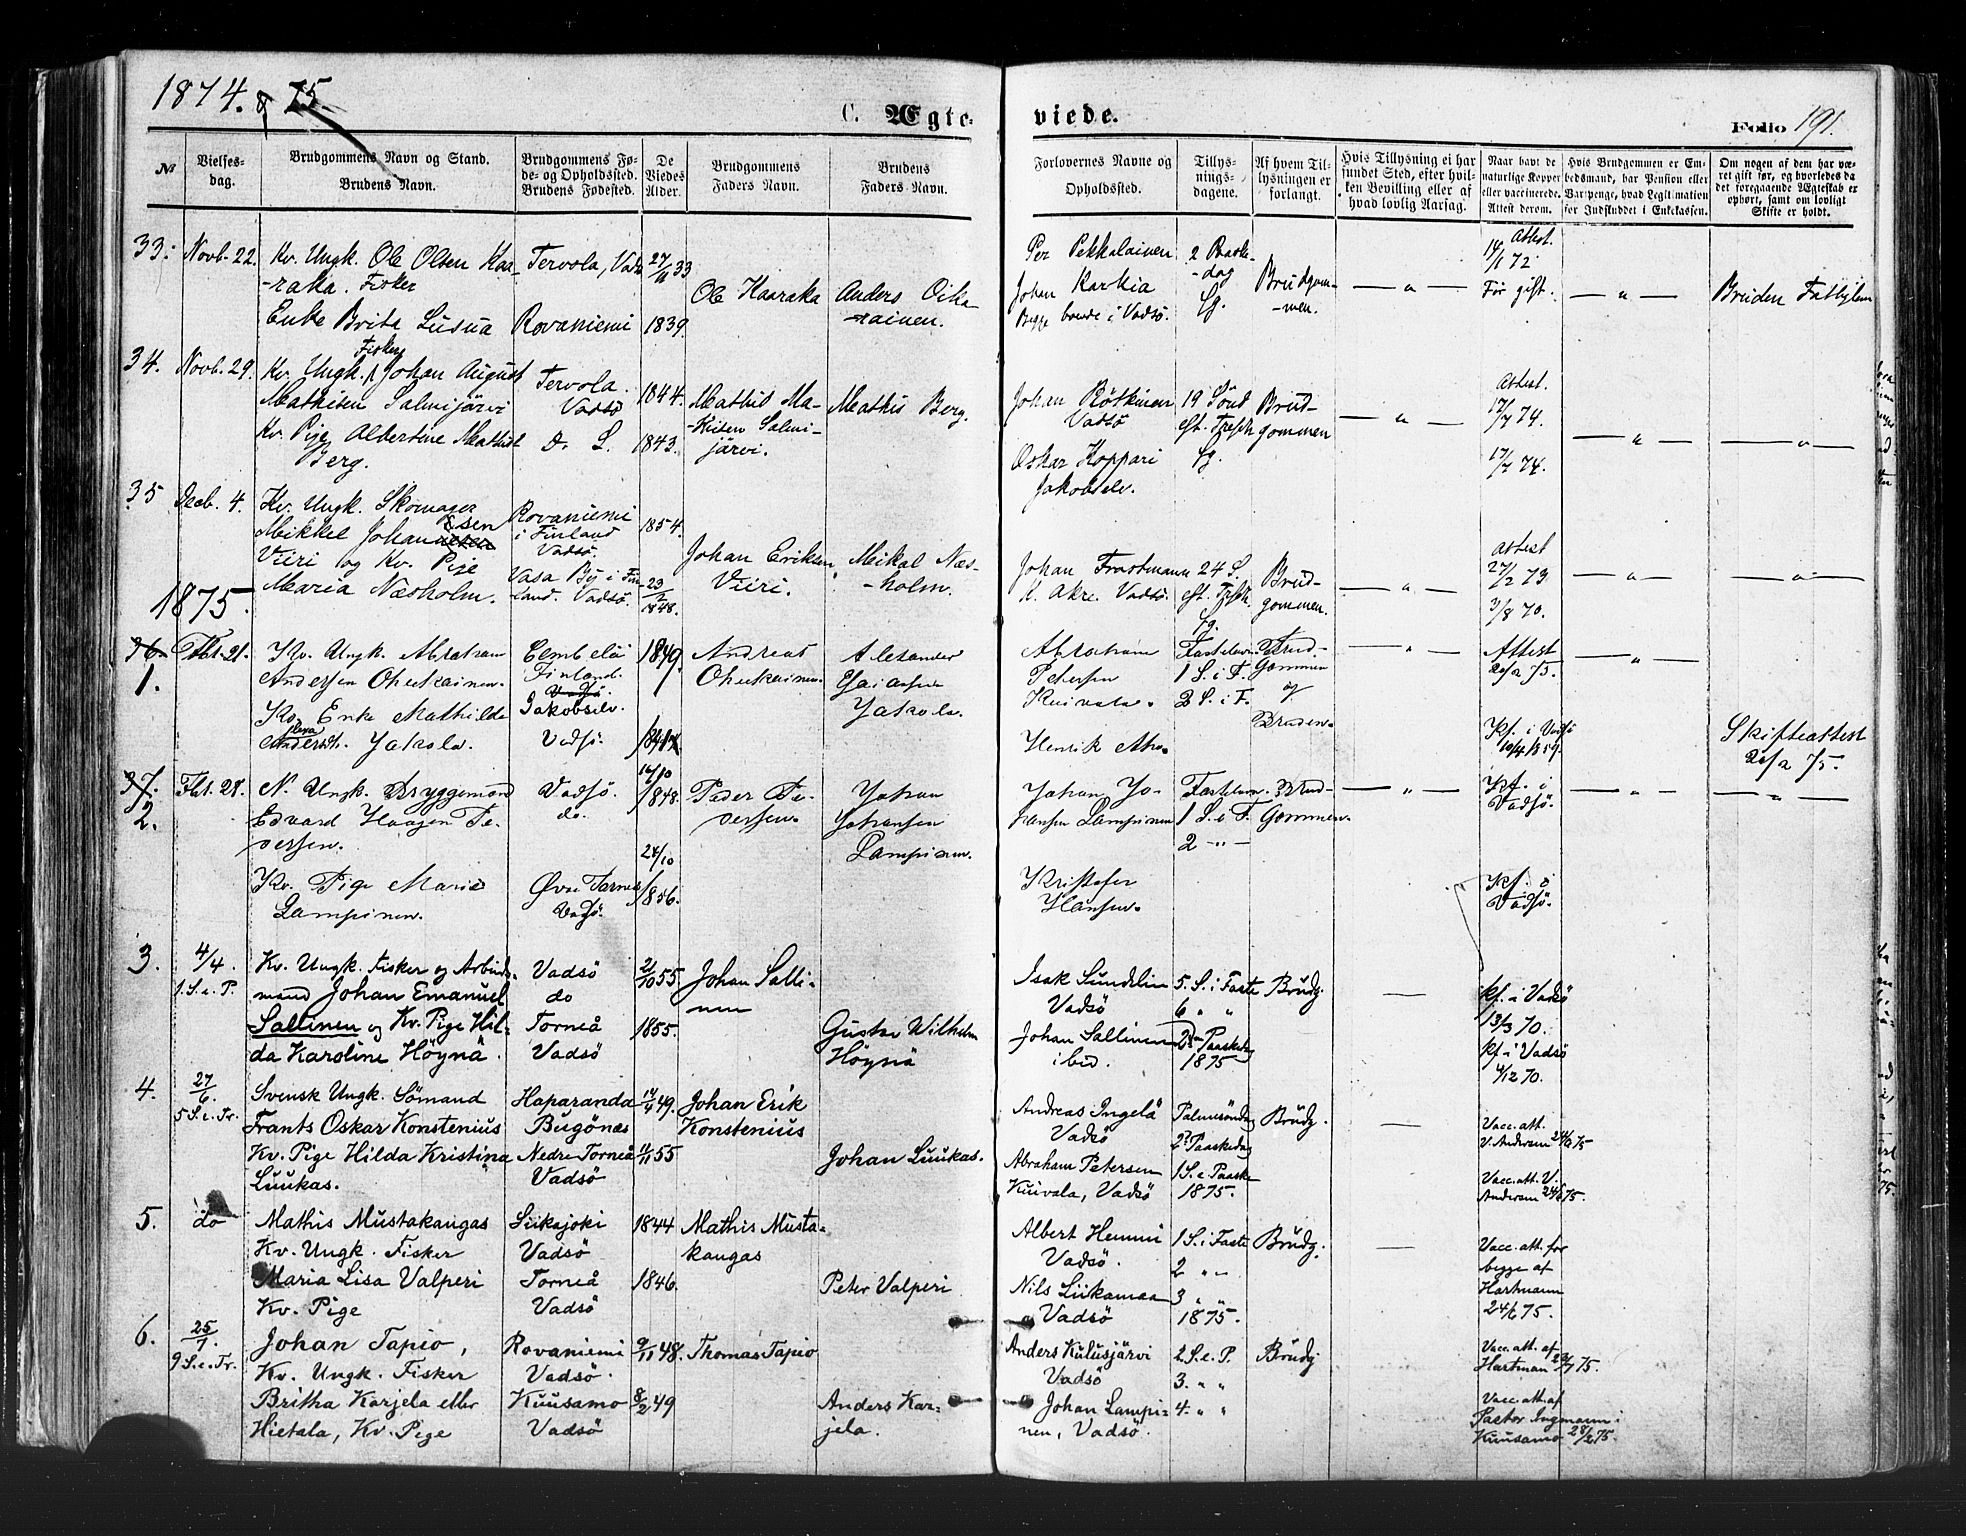 1874. & 75.
C. Ægteviede.
Folio 191.
№
Vielsesdag.
Brudgommens Navn og Stand.
Brudens Navn.
Brudgommens Føde- og Opholdssted.
Brudens Fødested.
De Viedes Alder.
Brudgommens Faders Navn.
Brudens Faders Navn.
Forlovernes Navne og Opholdssted.
Tillysningsdagene.
Af hvem Tillysningen er forlangt.
Hvis Tillysning ei har fundet Sted, efter hvilken Bevilling eller af hvad lovlig Aarsag.
Naar havt de naturlige Kopper eller vaccinerede. Attest derom.
Hvis Brudgommen er Embedsmand, har Pension eller Vartpenge, hvad Legitimation for Indskuddet i Enkekassen.
Om nogen af dem har været gift før, og hvorledes da det foregaaende Ægteskab er ophørt, samt om lovligt Skifte er holdt.
33. Novb. 22. Kv. Ungk. Ole Olsen Kaa-
-raka. Fisker
Enke Brita Lusua
Tervola, Vadsö
Rovaniemi
27/11 33
1839
Ole Kaaraka
Anders Oika-
-rainen.
Per Pekkalainen
Johan Karkia
Begge boende i Vadsö.
2 Paaske-
-dag
Brudgom-
-men.
— " —
Attest.
14/1 72
Før gift.
— " —
34. Novb. 29. Kv. Ungk. Fisker Johan August
Mathisen Salmijärvi
Kv. Pige Albertine Mathisd
Berg.
Tervola.
Vadsö
D. S.
1844.
1843.
Mathis Ma-
-thisen Salmi-
järvi.
Mathis Berg.
Johan Röтkинen
Vadsö
Oskar Koppari
Jakobselv.
19 Sönd
eft. Tresch
Brud-
gommen
— " —
Attest.
17/7 74.
17/7 74.
— " —
— " —
35 Decb. 4. Kv. Ungk. Skomager
Mikkel Johansen
Viiri og Kv. Pige
Maria Næsholm.
Rovaniemi
i Finland
Vadsö.
Vasa By i Fin-
land. Vadsö.
1854.
23/2 1848.
Johan Eriksen
Viiri.
Meikal Næs-
-holm.
Johan Frostmann
K. Akre. Vadsö.
24 S.
eft. Tresch.
Brud-
gommen.
— " —
Attest
27/2 73
3/8 70.
— " —
— " —
1875.
36.
1. Febr. 21. Kv. Ungk. Abraham
Andersen Oheekainen.
Kv. Enke Mathilde
Alexa
Andersd. Jakola.
Finland.
Vadsö.
Jakobselv.
Vadsö.
1849.
Andreas
Oheekainen.
Alexander
Esaiasen
Jakola.
Abraham
Petersen
Kuivala.
Henrik Aho.
Fastelavn.
1 S. i F.
2 S. i F.
Brud-
Gommen
og
Bruden.
— " —
Attest
20/2 75.
Kf. i Vadsö
10/4 1859.
— " —
Skifteattest
20/2 75.
37.
2. Febr. 28. N. Ungk. Bryggemand
Edvard Haagen Pe-
dersen.
Kv. Pige Maria
Lampinen.
Vadsö.
do.
Øvre Torneå
Vadsö.
16/10 1848.
24/10 1856.
Peder Pe-
dersen.
Johan
Johansen
Lampinen.
Johan Jo-
hansen Lampinen
Kristofer
Hansen.
Fastelavn.
1 S. i F.
2 — " —
Brud-
Gommen.
— " —
Kf. i
Vadsö.
Kf. i
Vadsö.
— " —
— " —
3. 4/4. 1. S. e. P.
Kv. Ungk. Fisker og Arbeids-
mand Johan Emanuel
Sallinen og Kv. Pige Hil-
da Karoline Höynä.
Vadsö
do
Torneå
Vadsö
21/10 55
1855.
Johan Salli-
nen
Gustav Wilhelm
Höynä
Isak Sundelin
Vadsö
Johan Sallinen
ibid.
5. S. i Faste
6 " "
2den Paaskedag
1875
Brudg.
—
kf. i Vadsö
13/3 70.
kf. i Vadsö
4/12 70.
4. 27/6. 5 S. e. Tr.
Svensk Ungk. Sömand
Frants Oskar Konstenius
Kv. Pige Hilda Kristina
Luukas.
Haparanda
Bugönæs
Nedre Torneå
Vadsö
14/4 49.
11/11 55
Johan Erik
Konstenius
Johan Luukas.
Andreas Ingelä
Vadsö
Abraham Petersen
Kuivala, Vadsö
Palmesöndag
2? Paaskedag
1 S. e. Paaske
1875.
Brudg.
—
Vacc. att.
V. Andersen 24/6 75
Vacc. att. V.
Andersen 24/6 75.
5. do
Mathis Mustakangas
Kv. Ungk. Fisker
Maria Lisa Valperi
Kv. Pige
Siikajoki
Vadsö
Torneå
Vadsö
1844
1846.
Mathis Musta-
kangas
Peter Valperi
Albert Hemmi
Vadsö.
Nils Liikamaa
Vadsö
1 S. i Faste
2 " "
3 " "
1875.
Brudg.
—
Vacc. att. for
begge af
Hartmann
24/6 75.
6. 25/7. 9 S. e. Tr.
Johan Tapio,
Kv. Ungk. Fisker
Britha Karjela eller
Hietala, Kv. Pige
Rovaniemi
Vadsö.
Kuusamo
Vadsö
9/11 48.
8/2 49
Thomas Tapio
Anders Kar-
jela.
Anders Kulusjärvi
Vadsö
Johan Lampi-
nen, Vadsö.
2. S. e. P.
3. " "
4. " "
Brudg
Vacc. att. af
Hartman 23/7 75.
Vacc. att. af
Pastor Ingmann i
Kuusamo 28/2 75.